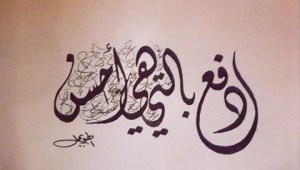 ادفع بالتي هي أحسن